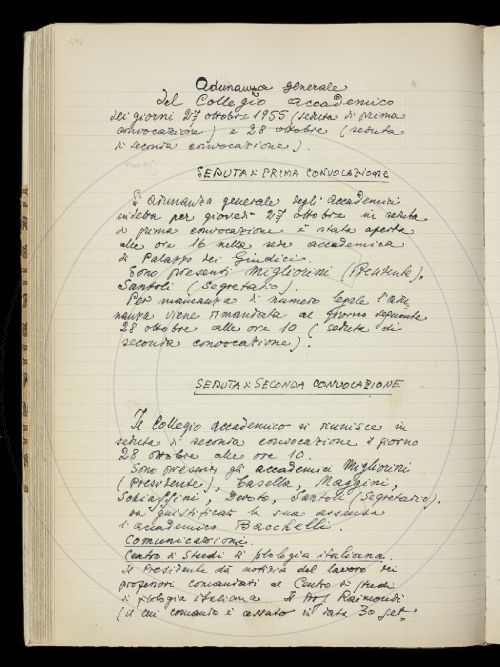 Adunanza generale
del Collegio accademico
dei giorni 27 ottobre 1955 (seduta di prima
convocazione) e 28 ottobre (seduta
di seconda convocazione).
SEDUTA DI PRIMA CONVOCAZIONE
L'adunanza generale degli Accademici
indetta per giovedì 27 ottobre in seduta
di prima convocazione è stata aperta
alle ore 16 nella sede accademica
di Palazzo dei Giudici.
Sono presenti Migliorini (Presidente),
Santoli (Segretario).
Per mancanza di numero legale l'adu-
nanza viene rimandata al giorno seguente
28 ottobre alle ore 10 (seduta di
seconda convocazione).
SEDUTA DI SECONDA CONVOCAZIONE
Il Collegio accademico si riunisce in
seduta di seconda convocazione il giorno
28 ottobre alle ore 10.
Sono presenti gli accademici Migliorini
(Presidente), Casella, Maggini,
Schiaffini, Devoto, Santoli (Segretario).
Ha giustificato la sua assenza
l'accademico Bacchelli.
Comunicazioni.
Centro di Studi di filologia italiana.
Il Presidente dà notizia del lavoro dei
professori comandati al Centro di studi
di filologia italiana. Il Prof. Raimondi
(il cui comando è cessato in data 30 set-